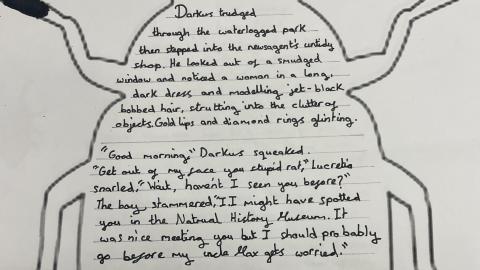 Darkus trudged
through the waterlogged park
then stepped into the newsagent's untidy
shop. He looked out of a smudged
window and noticed a woman in a long,
dark dress and modelling jet-black
bobbed hair, strutting into the clutter of
objects. Gold lips and diamond rings glinting.
"Good morning," Darkus squeaked.
"Get out of my face you stupid rat," Lucretia
snarled, "Wait, haven't I seen you before?"
The boy stammered, "I I might have spotted
you in the Natural History Museum. It
was nice meeting you but I should probably
go before my uncle Max gets worried."